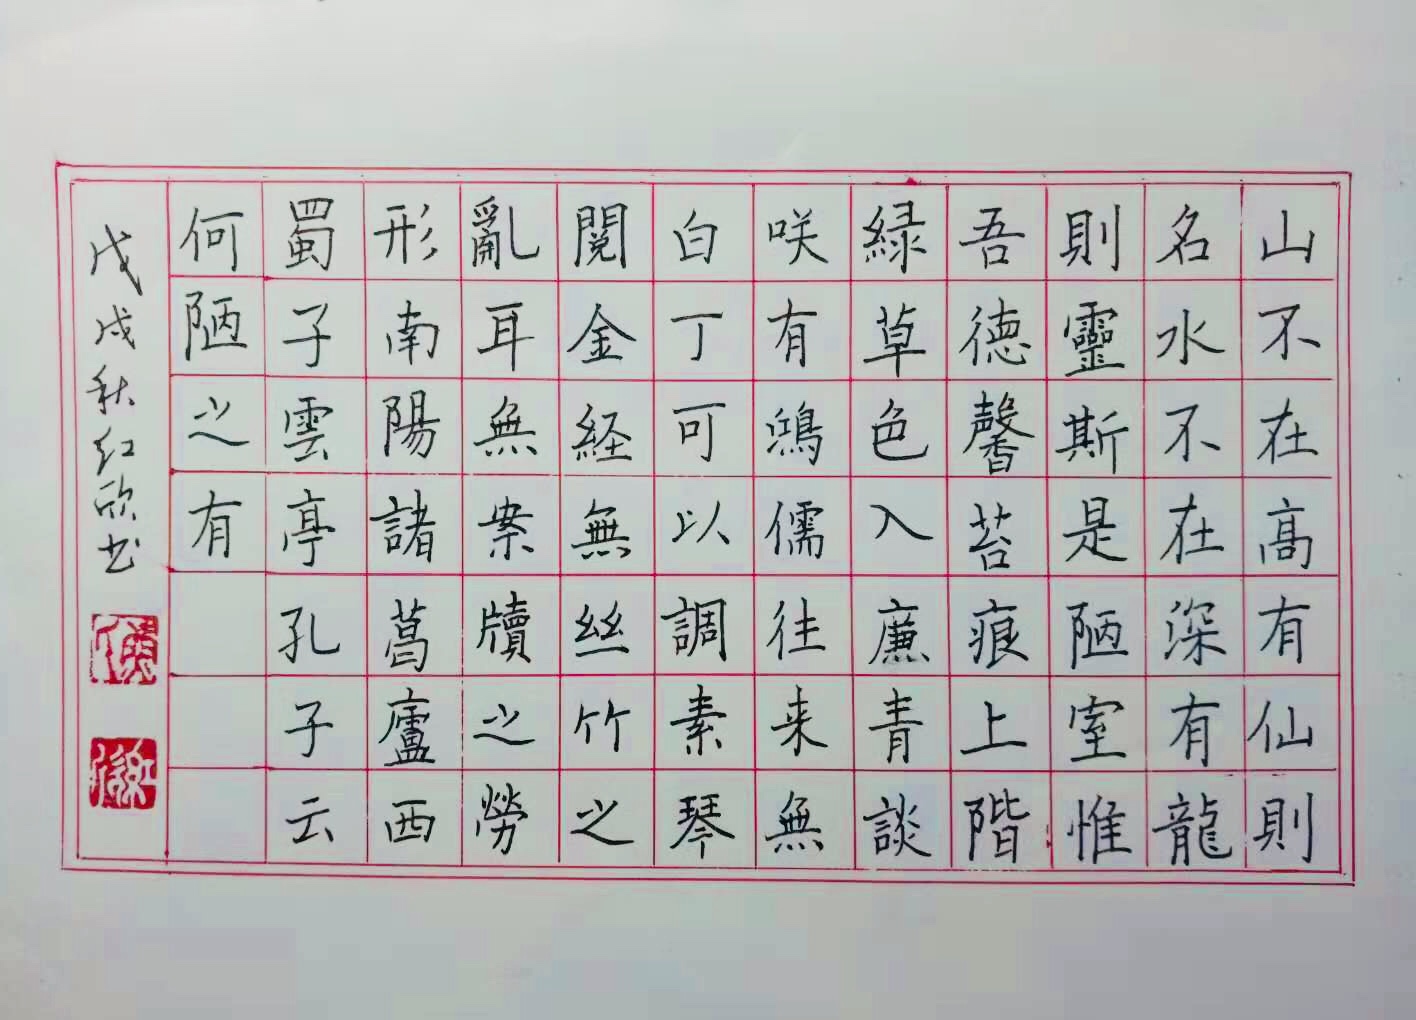 山不在高有仙則
名水不在深有龍
則靈斯是陋室惟
吾德馨苔痕上階
緑草色入廉青談
咲有鴻儒往来無
白丁可以調素琴
閱金経無絲竹之
亂耳無案牘之勞
形南陽諸葛廬西
蜀子雲亭孔子云
何陋之有
戊戌秋红欣书